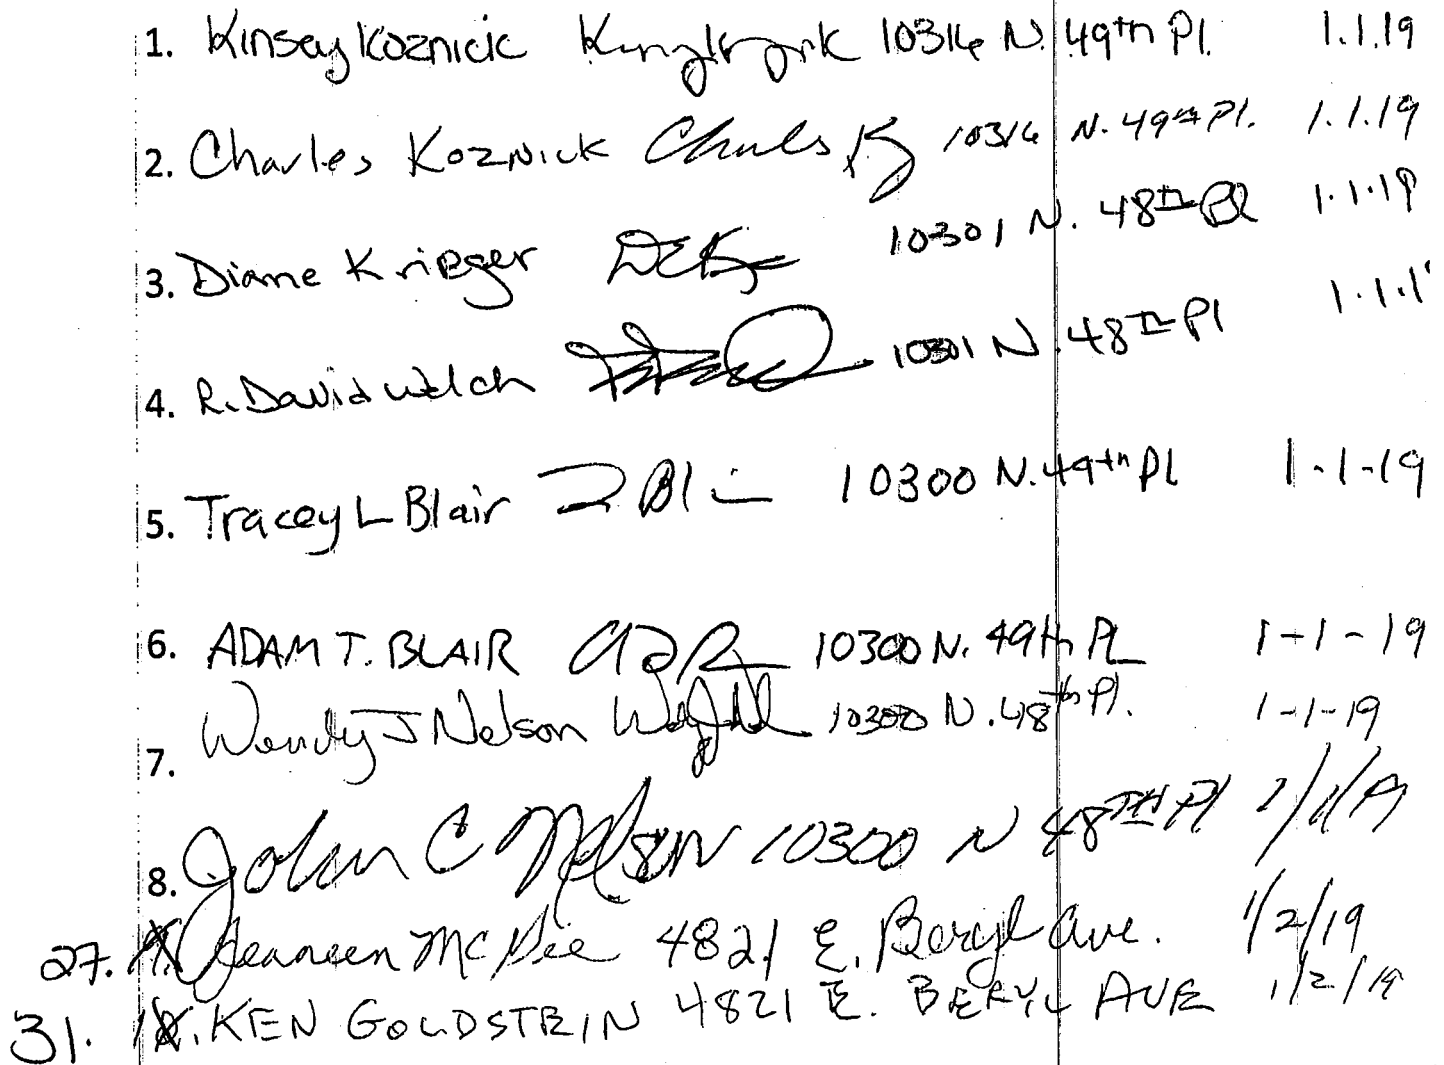 1. Kinsey Koznick 10316 N. 49th Pl. 1.1.19
2. Charles Koznick Charles K 10316 N. 49th Pl. 1.1.19
3. Diane Krieger 10301 N. 48th Pl 1.1.19
4. R. David Welch 10301 N. 48th Pl 1.1.1
5. Tracey L Blair 10300 N. 49th Pl 1-1-19
6. ADAM T. BLAIR 10300 N. 49th PL 1-1-19
7. Wendy J Nelson 10300 N. 48th Pl. 1-1-19
8. John C Nelson 10300 N 48TH Pl 1/1/19
27. Jeaneen McPie 4821 E. Beryl Ave. 1/2/19
31. KEN GOLDSTEIN 4821 E. BERYL AVE 1/2/19